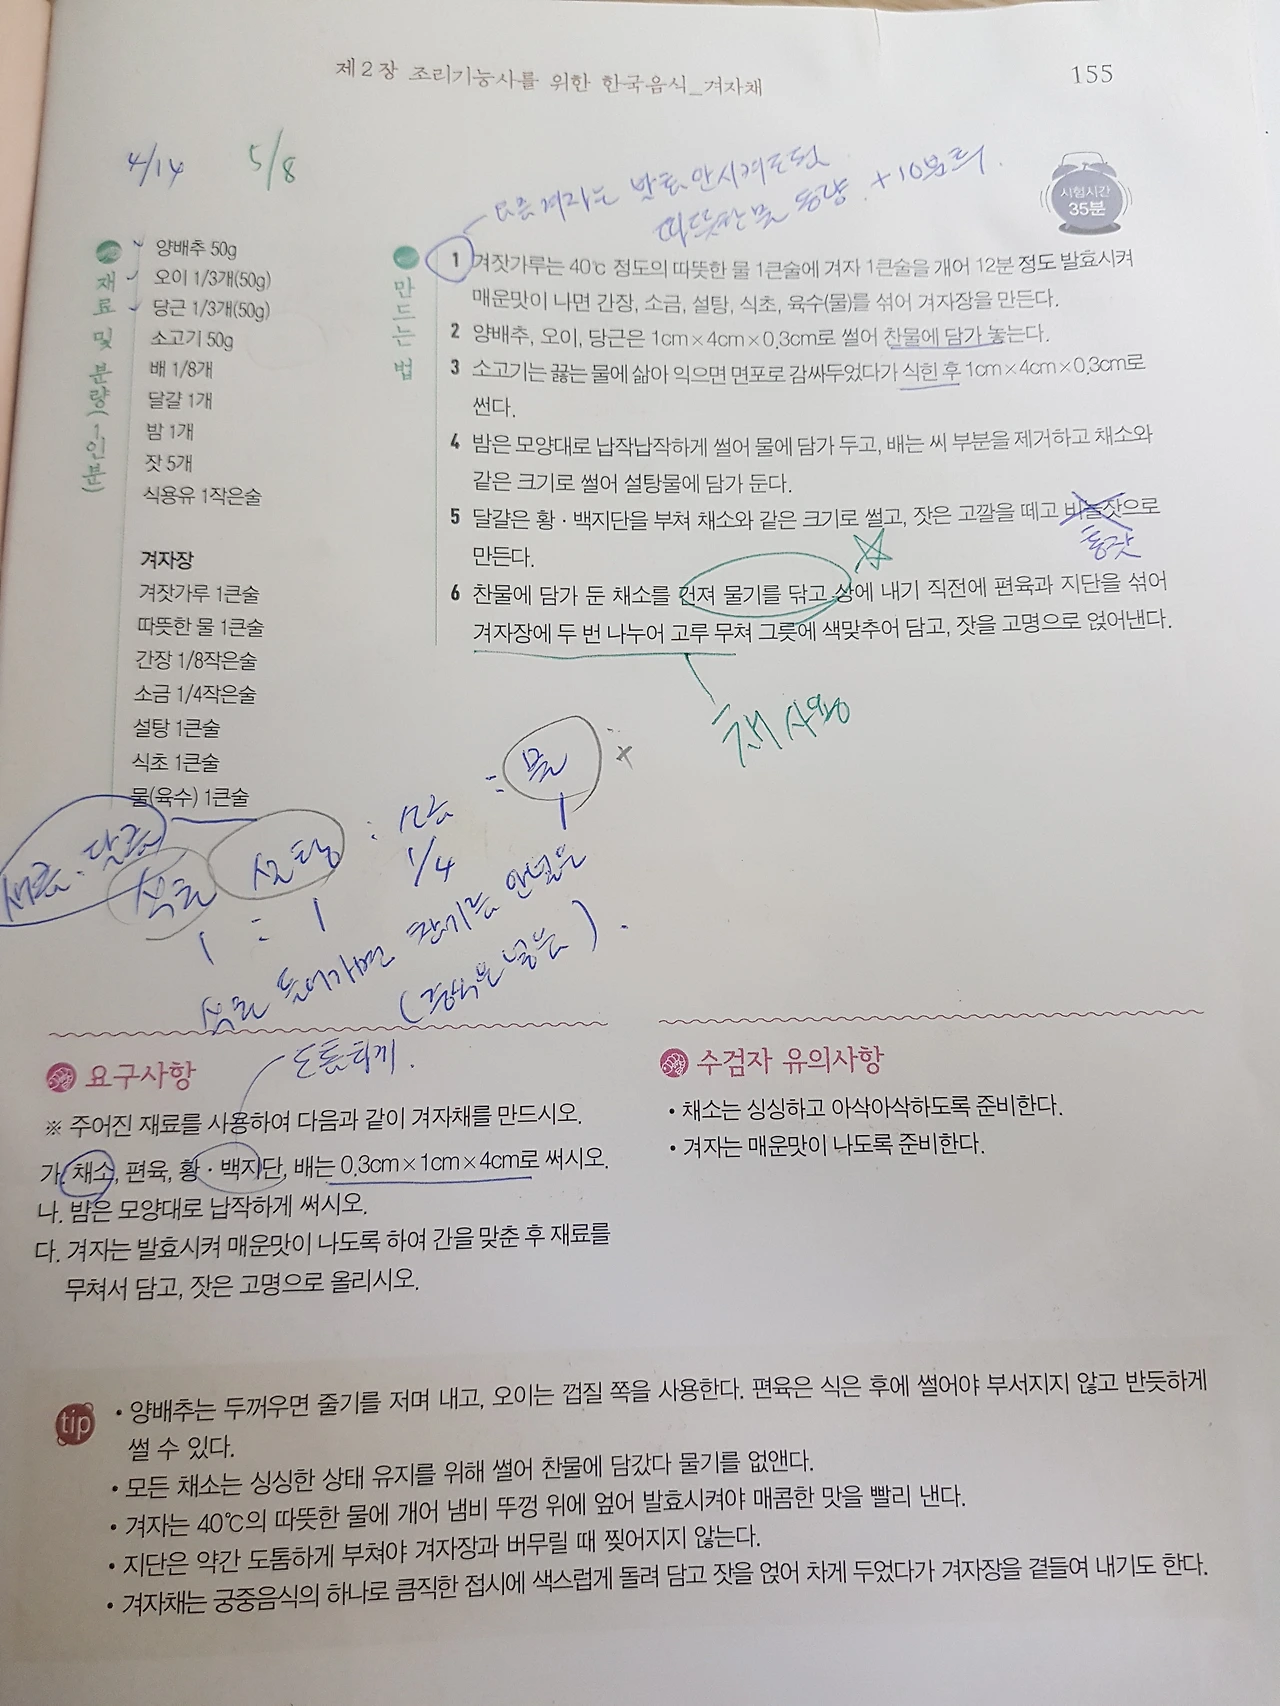 제2장 조리기능사를 위한 한국음식_겨자채
155
4/14
5/8
요즘 겨자는 발효 안시켜도 됨
따뜻한 물 동량. +10분 뒤.
시험시간
35분
재료 및 분량(1인분)
양배추 50g
오이 1/3개(50g)
당근 1/3개(50g)
소고기 50g
배 1/8개
달걀 1개
밤 1개
잣 5개
식용유 1작은술
겨자장
겨잣가루 1큰술
따뜻한 물 1큰술
간장 1/8작은술
소금 1/4작은술
설탕 1큰술
식초 1큰술
물(육수) 1큰술
만드는 법
1 겨잣가루는 40℃ 정도의 따뜻한 물 1큰술에 겨자 1큰술을 개어 12분 정도 발효시켜
매운맛이 나면 간장, 소금, 설탕, 식초, 육수(물)를 섞어 겨자장을 만든다.
2 양배추, 오이, 당근은 1cm×4cm×0.3cm로 썰어 찬물에 담가 놓는다.
3 소고기는 끓는 물에 삶아 익으면 면포로 감싸두었다가 식힌 후 1cm×4cm×0.3cm로
썬다.
4 밤은 모양대로 납작납작하게 썰어 물에 담가 두고, 배는 씨 부분을 제거하고 채소와
같은 크기로 썰어 설탕물에 담가 둔다.
5 달걀은 황·백지단을 부쳐 채소와 같은 크기로 썰고, 잣은 고깔을 떼고 비늘잣으로
통잣
만든다.
6 찬물에 담가 둔 채소를 건져 물기를 닦고 상에 내기 직전에 편육과 지단을 섞어
겨자장에 두 번 나누어 고루 무쳐 그릇에 색맞추어 담고, 잣을 고명으로 얹어낸다.
채 사용
새콤·달콤
식초 설탕 : 소금 : 물 ×
1 : 1 1/4 1
식초 들어가면 참기름 안넣음
도톰하게.
요구사항
※ 주어진 재료를 사용하여 다음과 같이 겨자채를 만드시오.
가. 채소, 편육, 황·백지단, 배는 0.3cm×1cm×4cm로 써시오.
나. 밤은 모양대로 납작하게 써시오.
다. 겨자는 발효시켜 매운맛이 나도록 하여 간을 맞춘 후 재료를
무쳐서 담고, 잣은 고명으로 올리시오.
수검자 유의사항
• 채소는 싱싱하고 아삭아삭하도록 준비한다.
• 겨자는 매운맛이 나도록 준비한다.
tip
• 양배추는 두꺼우면 줄기를 저며 내고, 오이는 껍질 쪽을 사용한다. 편육은 식은 후에 썰어야 부서지지 않고 반듯하게
썰 수 있다.
• 모든 채소는 싱싱한 상태 유지를 위해 썰어 찬물에 담갔다 물기를 없앤다.
• 겨자는 40℃의 따뜻한 물에 개어 냄비 뚜껑 위에 엎어 발효시켜야 매콤한 맛을 빨리 낸다.
• 지단은 약간 도톰하게 부쳐야 겨자장과 버무릴 때 찢어지지 않는다.
• 겨자채는 궁중음식의 하나로 큼직한 접시에 색스럽게 돌려 담고 잣을 얹어 차게 두었다가 겨자장을 곁들여 내기도 한다.